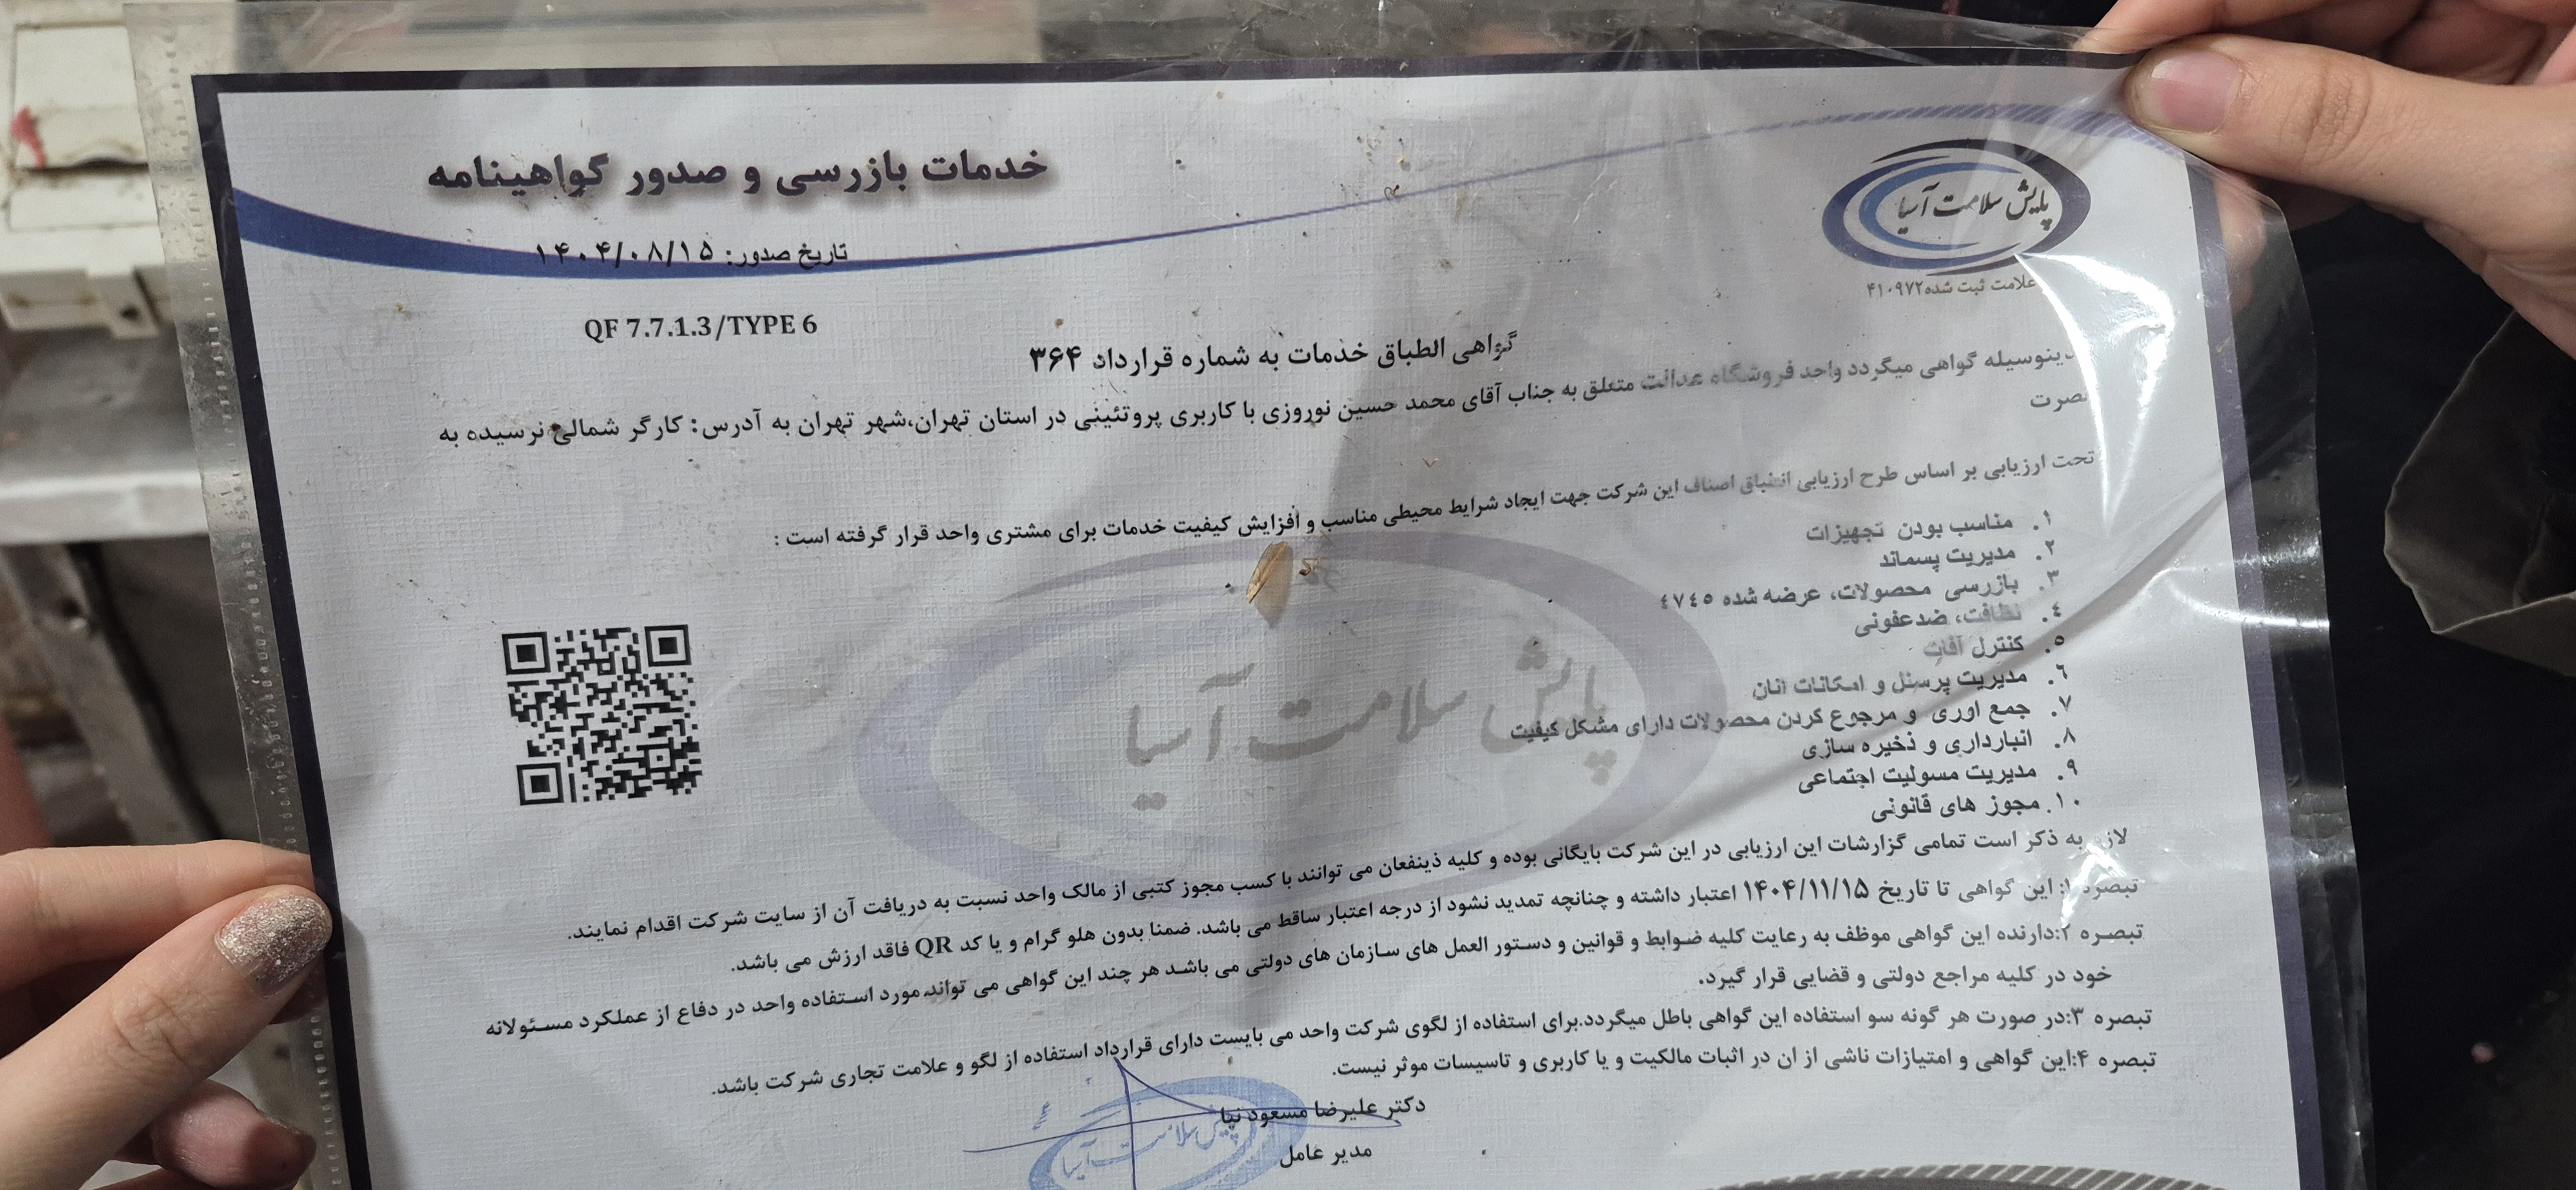 خدمات بازرسی و صدور گواهینامه
پایش سلامت آسیا
علامت ثبت شده ۴۱۰۹۷۲
تاریخ صدور: ۱۴۰۴/۰۸/۱۵
QF 7.7.1.3/TYPE 6
گواهی الطباق خدمات به شماره قرارداد ۳۶۴
دینوسیله گواهی میگردد واحد فروشگاه عدالت متعلق به جناب آقای محمد حسین نوروزی با کاربری پروتئینی در استان تهران،شهر تهران به آدرس: کارگر شمالی نرسیده به
نصرت
تحت ارزیابی بر اساس طرح ارزیابی انطباق اصناف این شرکت جهت ایجاد شرایط محیطی مناسب و افزایش کیفیت خدمات برای مشتری واحد قرار گرفته است :
۱. مناسب بودن تجهیزات
۲. مدیریت پسماند
۳. بازرسی محصولات، عرضه شده ٤٧٤٥
٤. نظافت، ضدعفونی
٥. کنترل آفات
٦. مدیریت پرسنل و امکانات انان
۷. جمع اوری و مرجوع کردن محصولات دارای مشکل کیفیت
۸. انبارداری و ذخیره سازی
۹. مدیریت مسولیت اجتماعی
۱۰. مجوز های قانونی
پایش سلامت آسیا
لازم به ذکر است تمامی گزارشات این ارزیابی در این شرکت بایگانی بوده و کلیه ذینفعان می توانند با کسب مجوز کتبی از مالک واحد نسبت به دریافت آن از سایت شرکت اقدام نمایند.
تبصره ۱: این گواهی تا تاریخ ۱۴۰۴/۱۱/۱۵ اعتبار داشته و چنانچه تمدید نشود از درجه اعتبار ساقط می باشد. ضمنا بدون هلو گرام و یا کد QR فاقد ارزش می باشد.
تبصره ۲:دارنده این گواهی موظف به رعایت کلیه ضوابط و قوانین و دستور العمل های سازمان های دولتی می باشد هر چند این گواهی می تواند مورد استفاده واحد در دفاع از عملکرد مسئولانه
خود در کلیه مراجع دولتی و قضایی قرار گیرد.
تبصره ۳:در صورت هر گونه سو استفاده این گواهی باطل میگردد.برای استفاده از لگوی شرکت واحد می بایست دارای قرارداد استفاده از لگو و علامت تجاری شرکت باشد.
تبصره ۴:این گواهی و امتیازات ناشی از ان در اثبات مالکیت و یا کاربری و تاسیسات موثر نیست.
دکتر علیرضا مسعود نیا
مدیر عامل
پایش سلامت آسیا